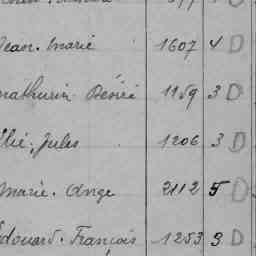 Jean. Marie 1607 4 D
Mathurin Désiré 1159 3 D
Élie. Jules 1206 3 D
Marie. Ange 2112 5 D
Édouard. François 1253 9 D